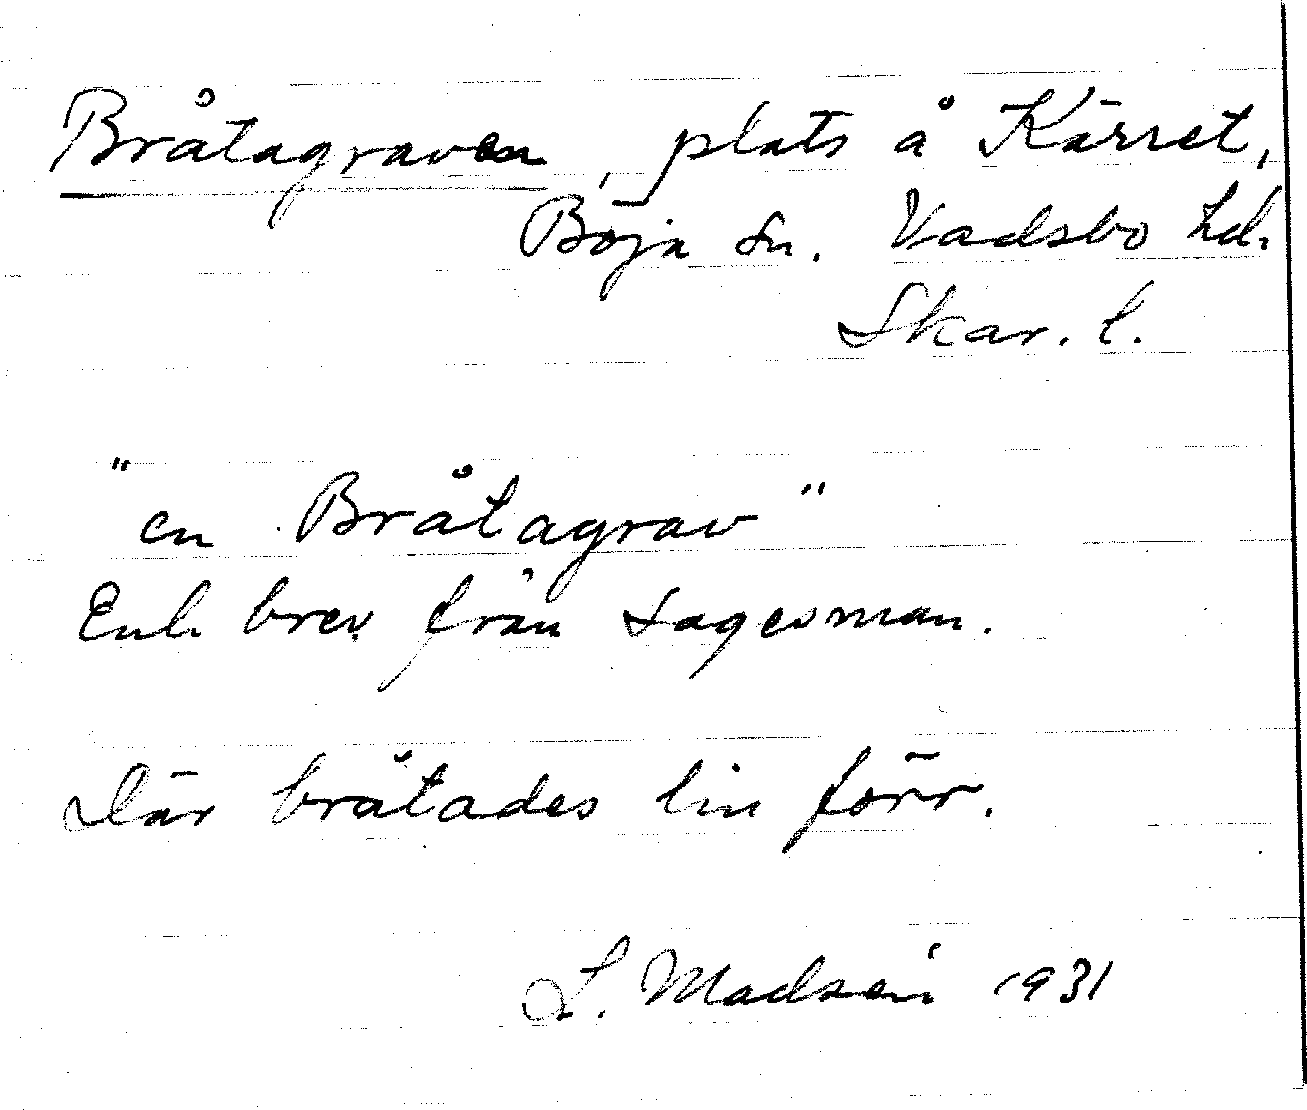 Bråtagraven, plats å Kärret,
Böja sn. Vadsbo hd.
Skar. l.
"en Bråtagrav"
Enl. brev från sagesman.
Där bråtades lin förr.
L. Madsén 1931